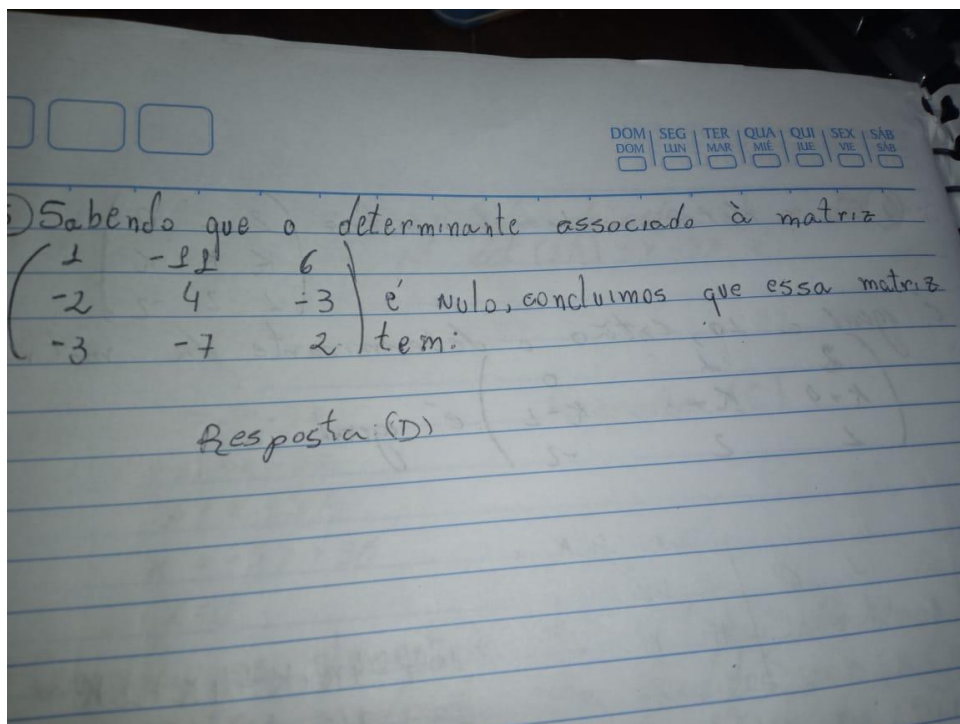 DOM SEG TER QUA QUI SEX SÁB
DOM LUN MAR MIÉ JUE VIE SÁB
5) Sabendo que o determinante associado à matriz
1 -11 6
-2 4 -3 é nulo, concluimos que essa matriz
-3 -7 2 tem:
Resposta: (D)